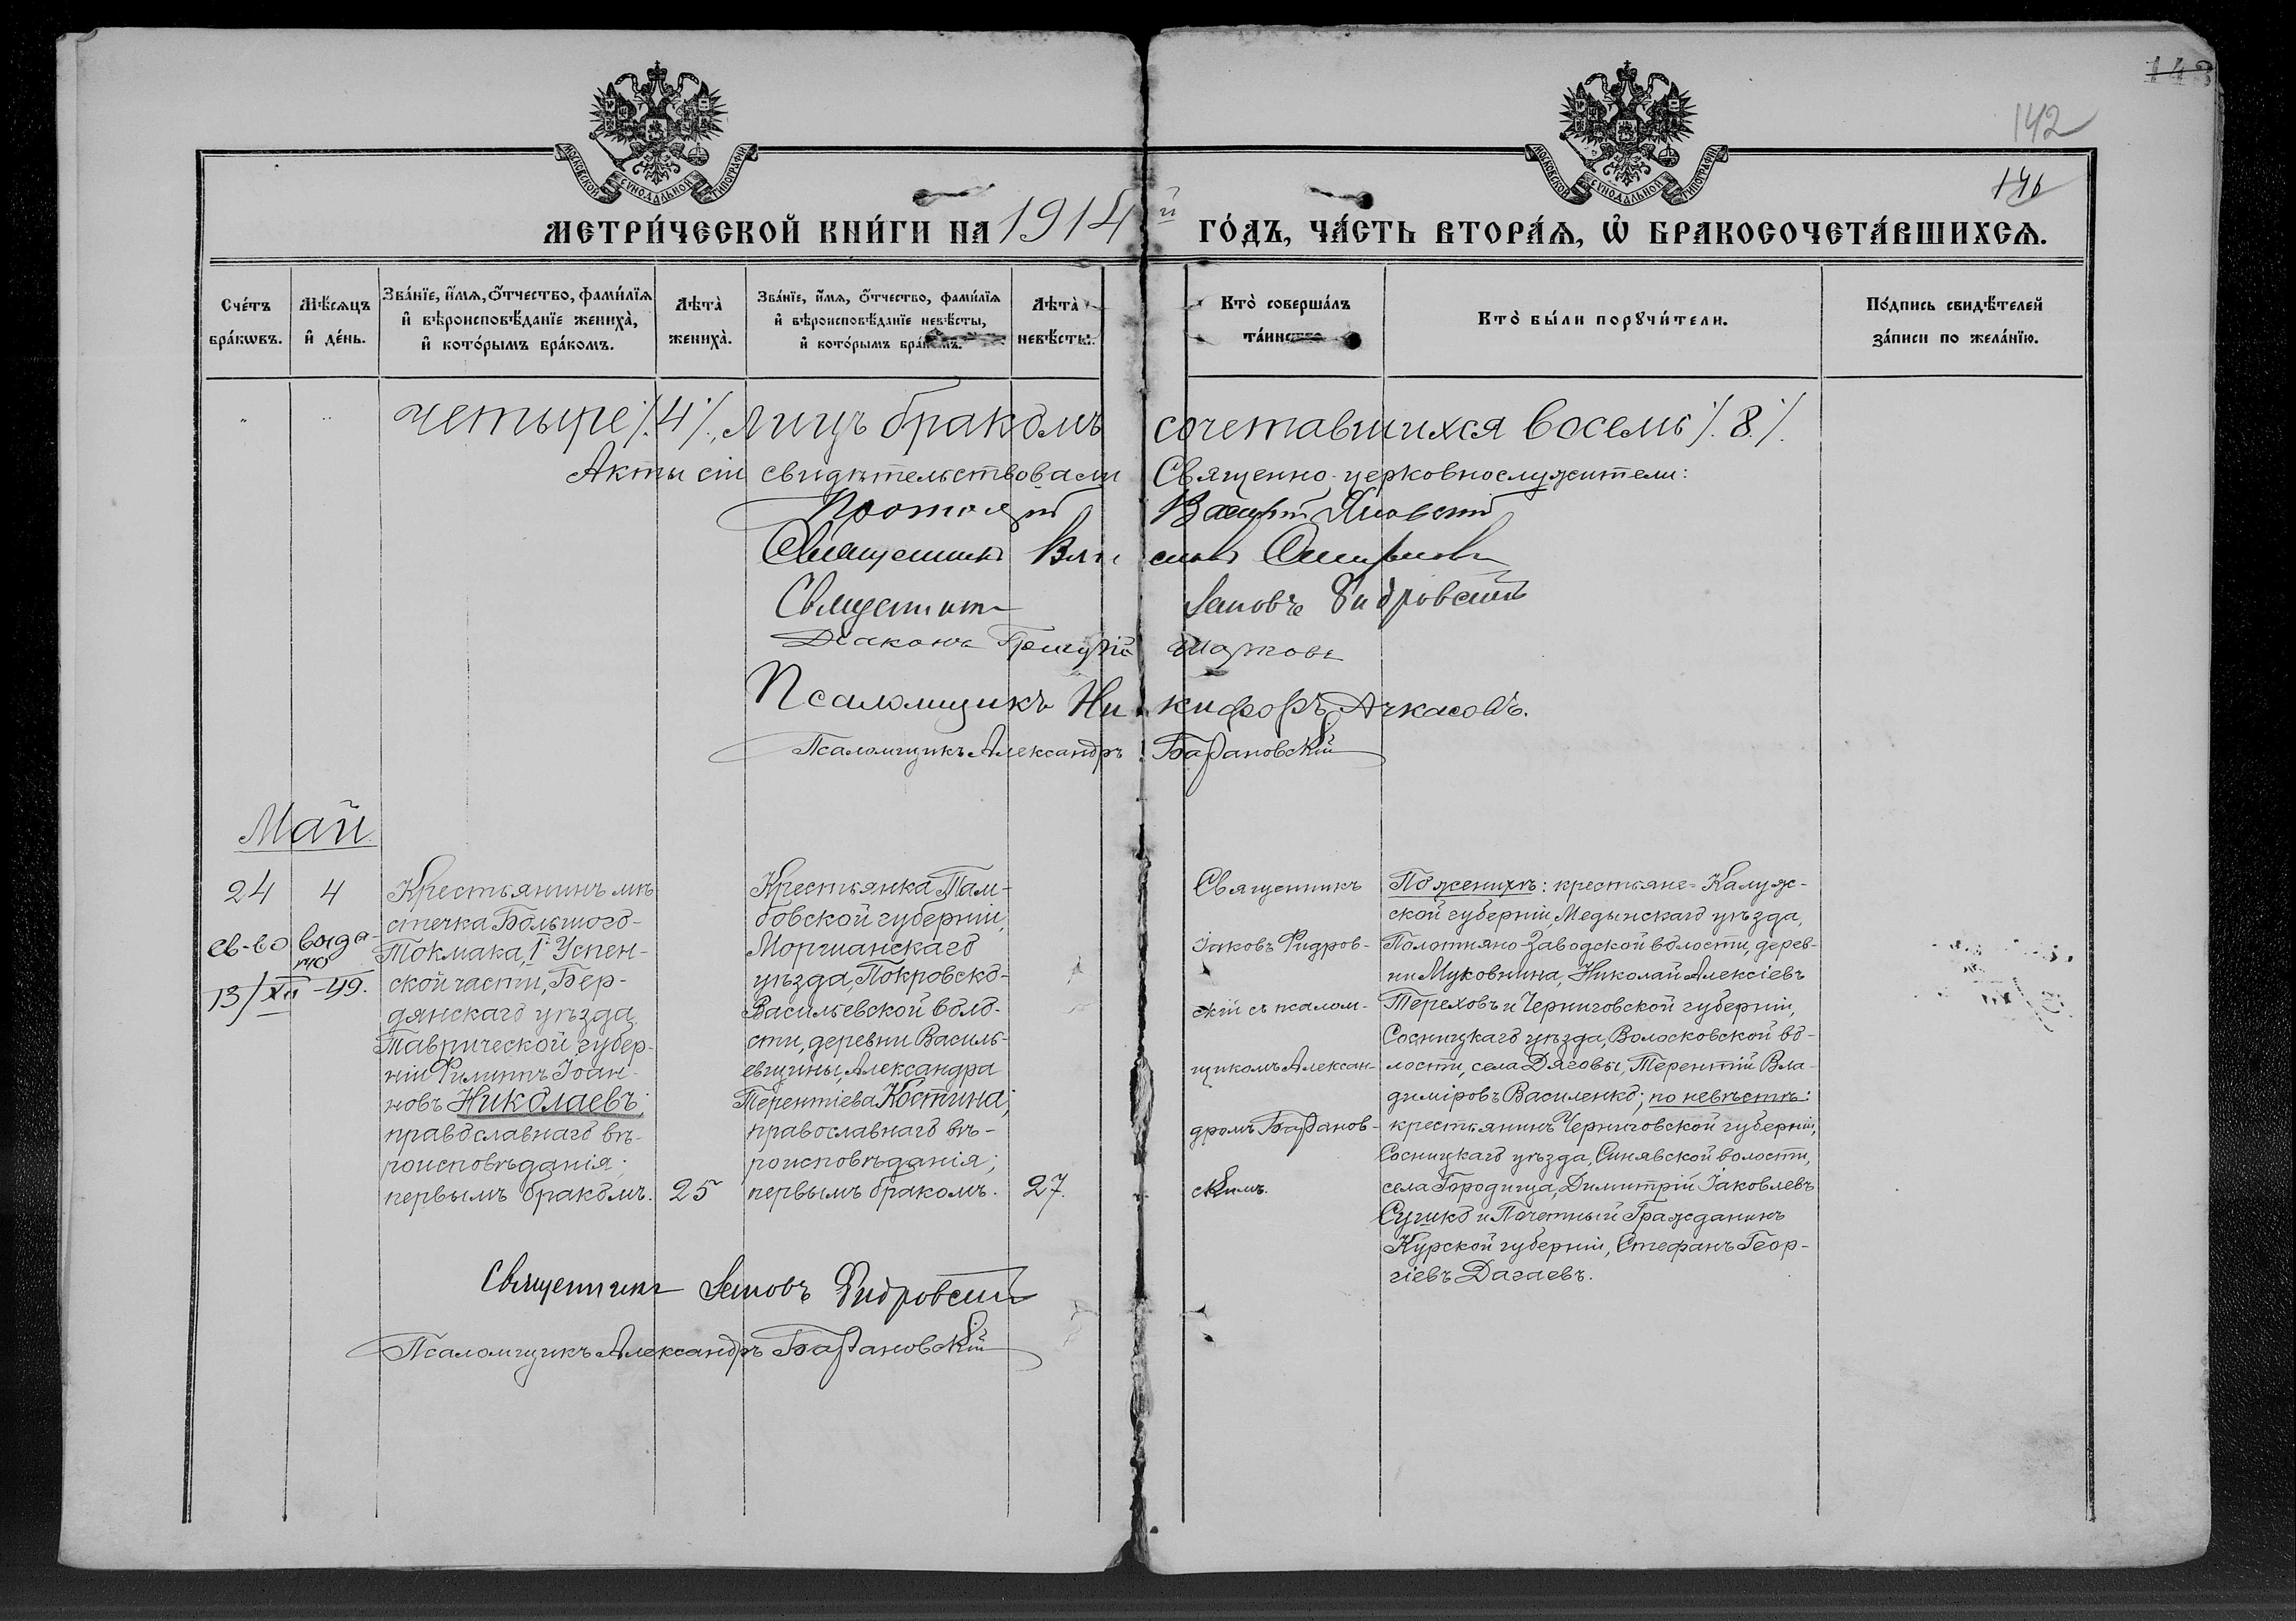 143
142
146
МОСКОВСКОЙ СѴНОДАЛЬНОЙ ТИПОГРАФІИ
МОСКОВСКОЙ СѴНОДАЛЬНОЙ ТИПОГРАФІИ
МЕТРИ́ЧЕСКОЙ КНИ́ГИ НА 1914й ГО́ДЪ, ЧА́СТЬ ВТОРА́Ѧ, Ѽ БРАКОСОЧЕТА́ВШИХСѦ.
Сче́тъ
бра́кѡвъ.
Мѣ́сѧцъ
и҆ де́нь.
Зва́нїе, и҆́мѧ, ѻ҆́тчество, фами́лїѧ
и҆ вѣроисповѣ́данїе жениха̀,
и҆ кото́рымъ бра́комъ.
Лѣта̀
жениха̀.
Зва́нїе, и҆́мѧ, ѻ҆́тчество, фами́лїѧ
и҆ вѣроисповѣ́данїе невѣ́сты,
и҆ кото́рымъ бра́комъ.
Лѣта̀
невѣ́сты.
Кто̀ соверша́лъ
та́инство
Кто̀ бы́ли порꙋчи́тели.
По́дпись свидѣ́телей
за́писи по жела́нїю.
четыре /.4./, лицъ бракомъ сочетавшихся восемь /.8./.
Акты сіи свидѣтельствовали Священно-церковнослужители:
Протоіерей Василій Яновскій
Священникъ
Священникъ Іаковъ Ѳидровскій
Діаконъ Григорій Марковъ
Псаломщикъ Никифоръ Ачкасовъ.
Псаломщикъ Александръ Барановскій
Май
24
4
св-во выда-
но
13/XII-49.
Крестьянинъ мѣ-
стечка Большого-
Токмака, 1й Успен-
ской части, Бер-
дянскаго уѣзда,
Таврической губер-
ніи Филиппъ Іоан-
новъ Николаевъ;
православнаго вѣ-
роисповѣданія;
первымъ бракомъ.
25
Крестьянка Там-
бовской губерніи,
Моршанскаго
уѣзда, Покровско-
Васильевской воло-
сти, деревни Василь-
евщины, Александра
Терентіева Костина;
православнаго вѣ-
роисповѣданія;
первымъ бракомъ.
27.
Священникъ
Іаковъ Ѳидров-
скій съ псалом-
щикомъ Алексан-
дромъ Баранов-
скимъ.
По женихѣ: крестьяне Калуж-
ской губерніи, Медынскаго уѣзда,
Полотняно-Заводской волости, дерев-
ни Муковнина, Николай Алексіевъ
Тереховъ и Черниговской губерніи,
Сосницкаго уѣзда, Волосковской во-
лости, села Дяговы, Терентій Вла-
диміровъ Василенко; по невѣстѣ:
крестьянинъ Черниговской губерніи,
Сосницкаго уѣзда, Синявской волости,
села Городища, Димитрій Іаковлевъ
Сушко и Почетный Гражданинъ
Курской губерніи, Стефанъ Геор-
гіевъ Дагаевъ.
Священникъ Іаковъ Ѳидровскій
Псаломщикъ Александръ Барановскій